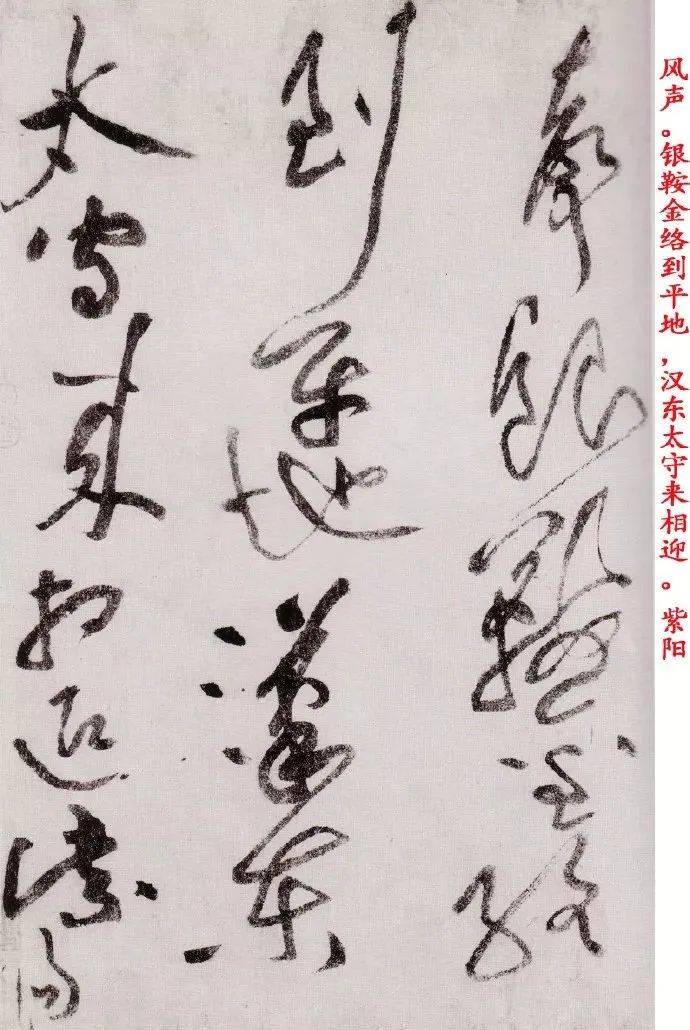 风声。银鞍金络到平地,汉东太守来相迎。紫阳
聲銀鞍金絡
到平地漢東
太守來相迎紫陽